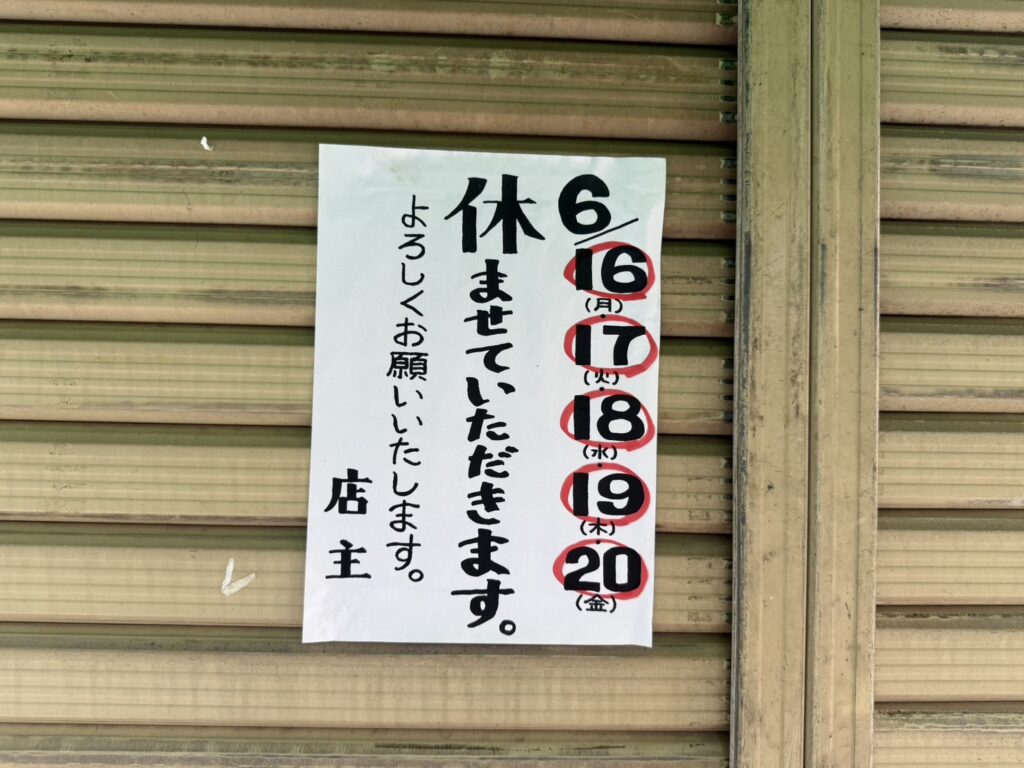 6/16(月)・17(火)・18(水)・19(木)・20(金)
休ませていただきます。
よろしくお願いいたします。
店主